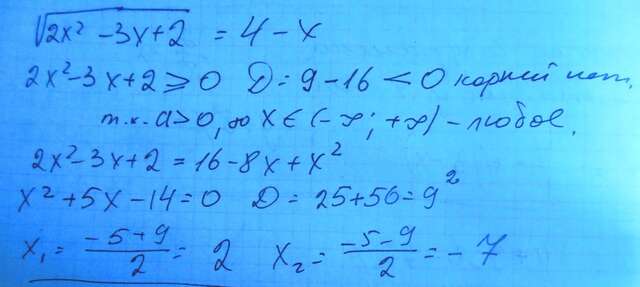 √2x² - 3x + 2 = 4 - x
2x² - 3x + 2 ⩾ 0 D = 9 - 16 < 0 корней нет.
т.к. a > 0, то x ∈ (-∞; +∞) - любое.
2x² - 3x + 2 = 16 - 8x + x²
x² + 5x - 14 = 0 D = 25 + 56 = 9²
x₁ = (-5 + 9)/2 = 2 x₂ = (-5 - 9)/2 = -7